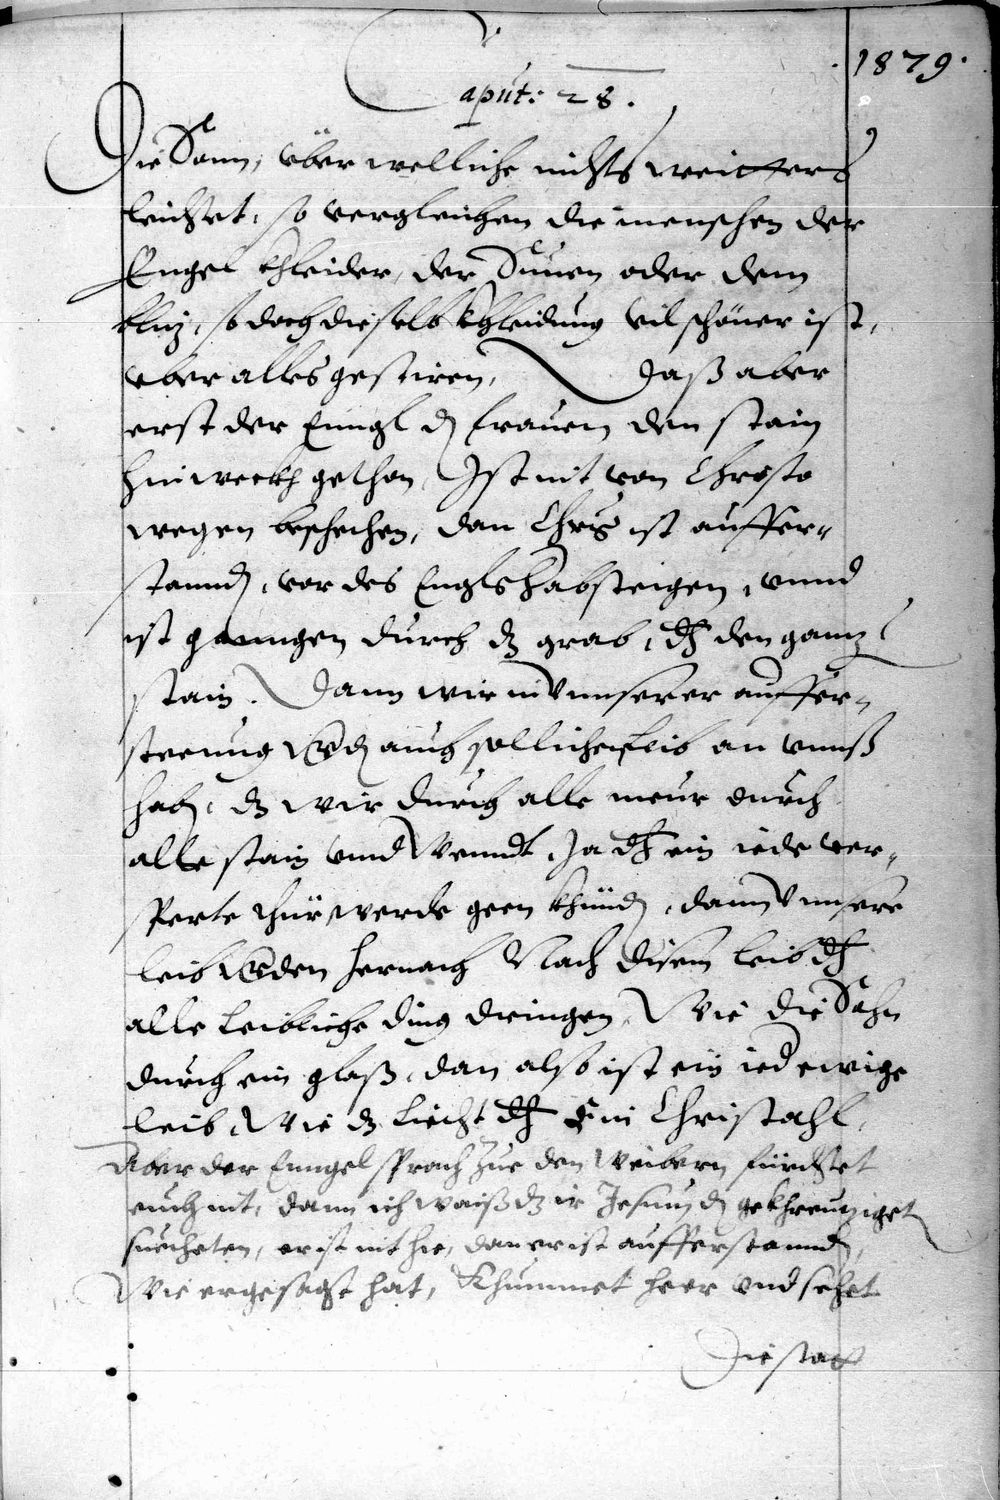 ·1879·
Caput: 28.
Die Sonn, über welliche nichts weitters
leichtet, so vergleichen die menschen der
Engel khleider, der Sunen oder dem
bliz, so doch dieselb Khleidung vil schöner ist,
uber alles gestiren, Daß aber
erst der Enngl d frauen den stain
hinweckh gethon, Ist nit von Christo
wegen beschechen, dan Chrs ist auffer-
stannd, vor des Engls habsteigen, vnnd
ist ganngen durch dz grab, dh den ganz
stain. Dann wir in vnnserer auffer-
steeung auch sollichen leib an vnnß
hab, dz wir durch alle meur durch
alle stain vnnd Wenndt, Ja dh ein iede ver-
sperte thür werde geen khünd, dann vnnsere
leib wden hernach Nach disem leib dh
alle leibliche ding dringen, Wie die Sohn
durch ein glaß, dan also ist ein ied ewige
leib, Wie dz Liecht dh Ein Christahl,
Aber der Enngel sprach zue den Weibern fürchtet
euch nit, dann ich waiß dz ir Jesum d gekhreuziget
suecheten, er ist nit hie, dan er ist aufferstannd,
Wie er gesagt hat, Khummet heer vnd sehet
Die stat